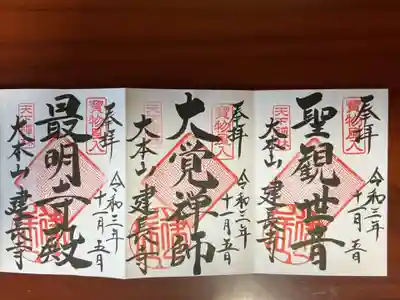 奉拝
寳物風入
聖觀世音
令和三年
十一月五日
天下禅林
大本山 建長寺
奉拝
寳物風入
大覚禅師
令和三年
十一月五日
大本山 建長寺
奉拝
寳物風入
最明寺殿
令和三年
十一月五日
天下禅林
大本山 建長寺